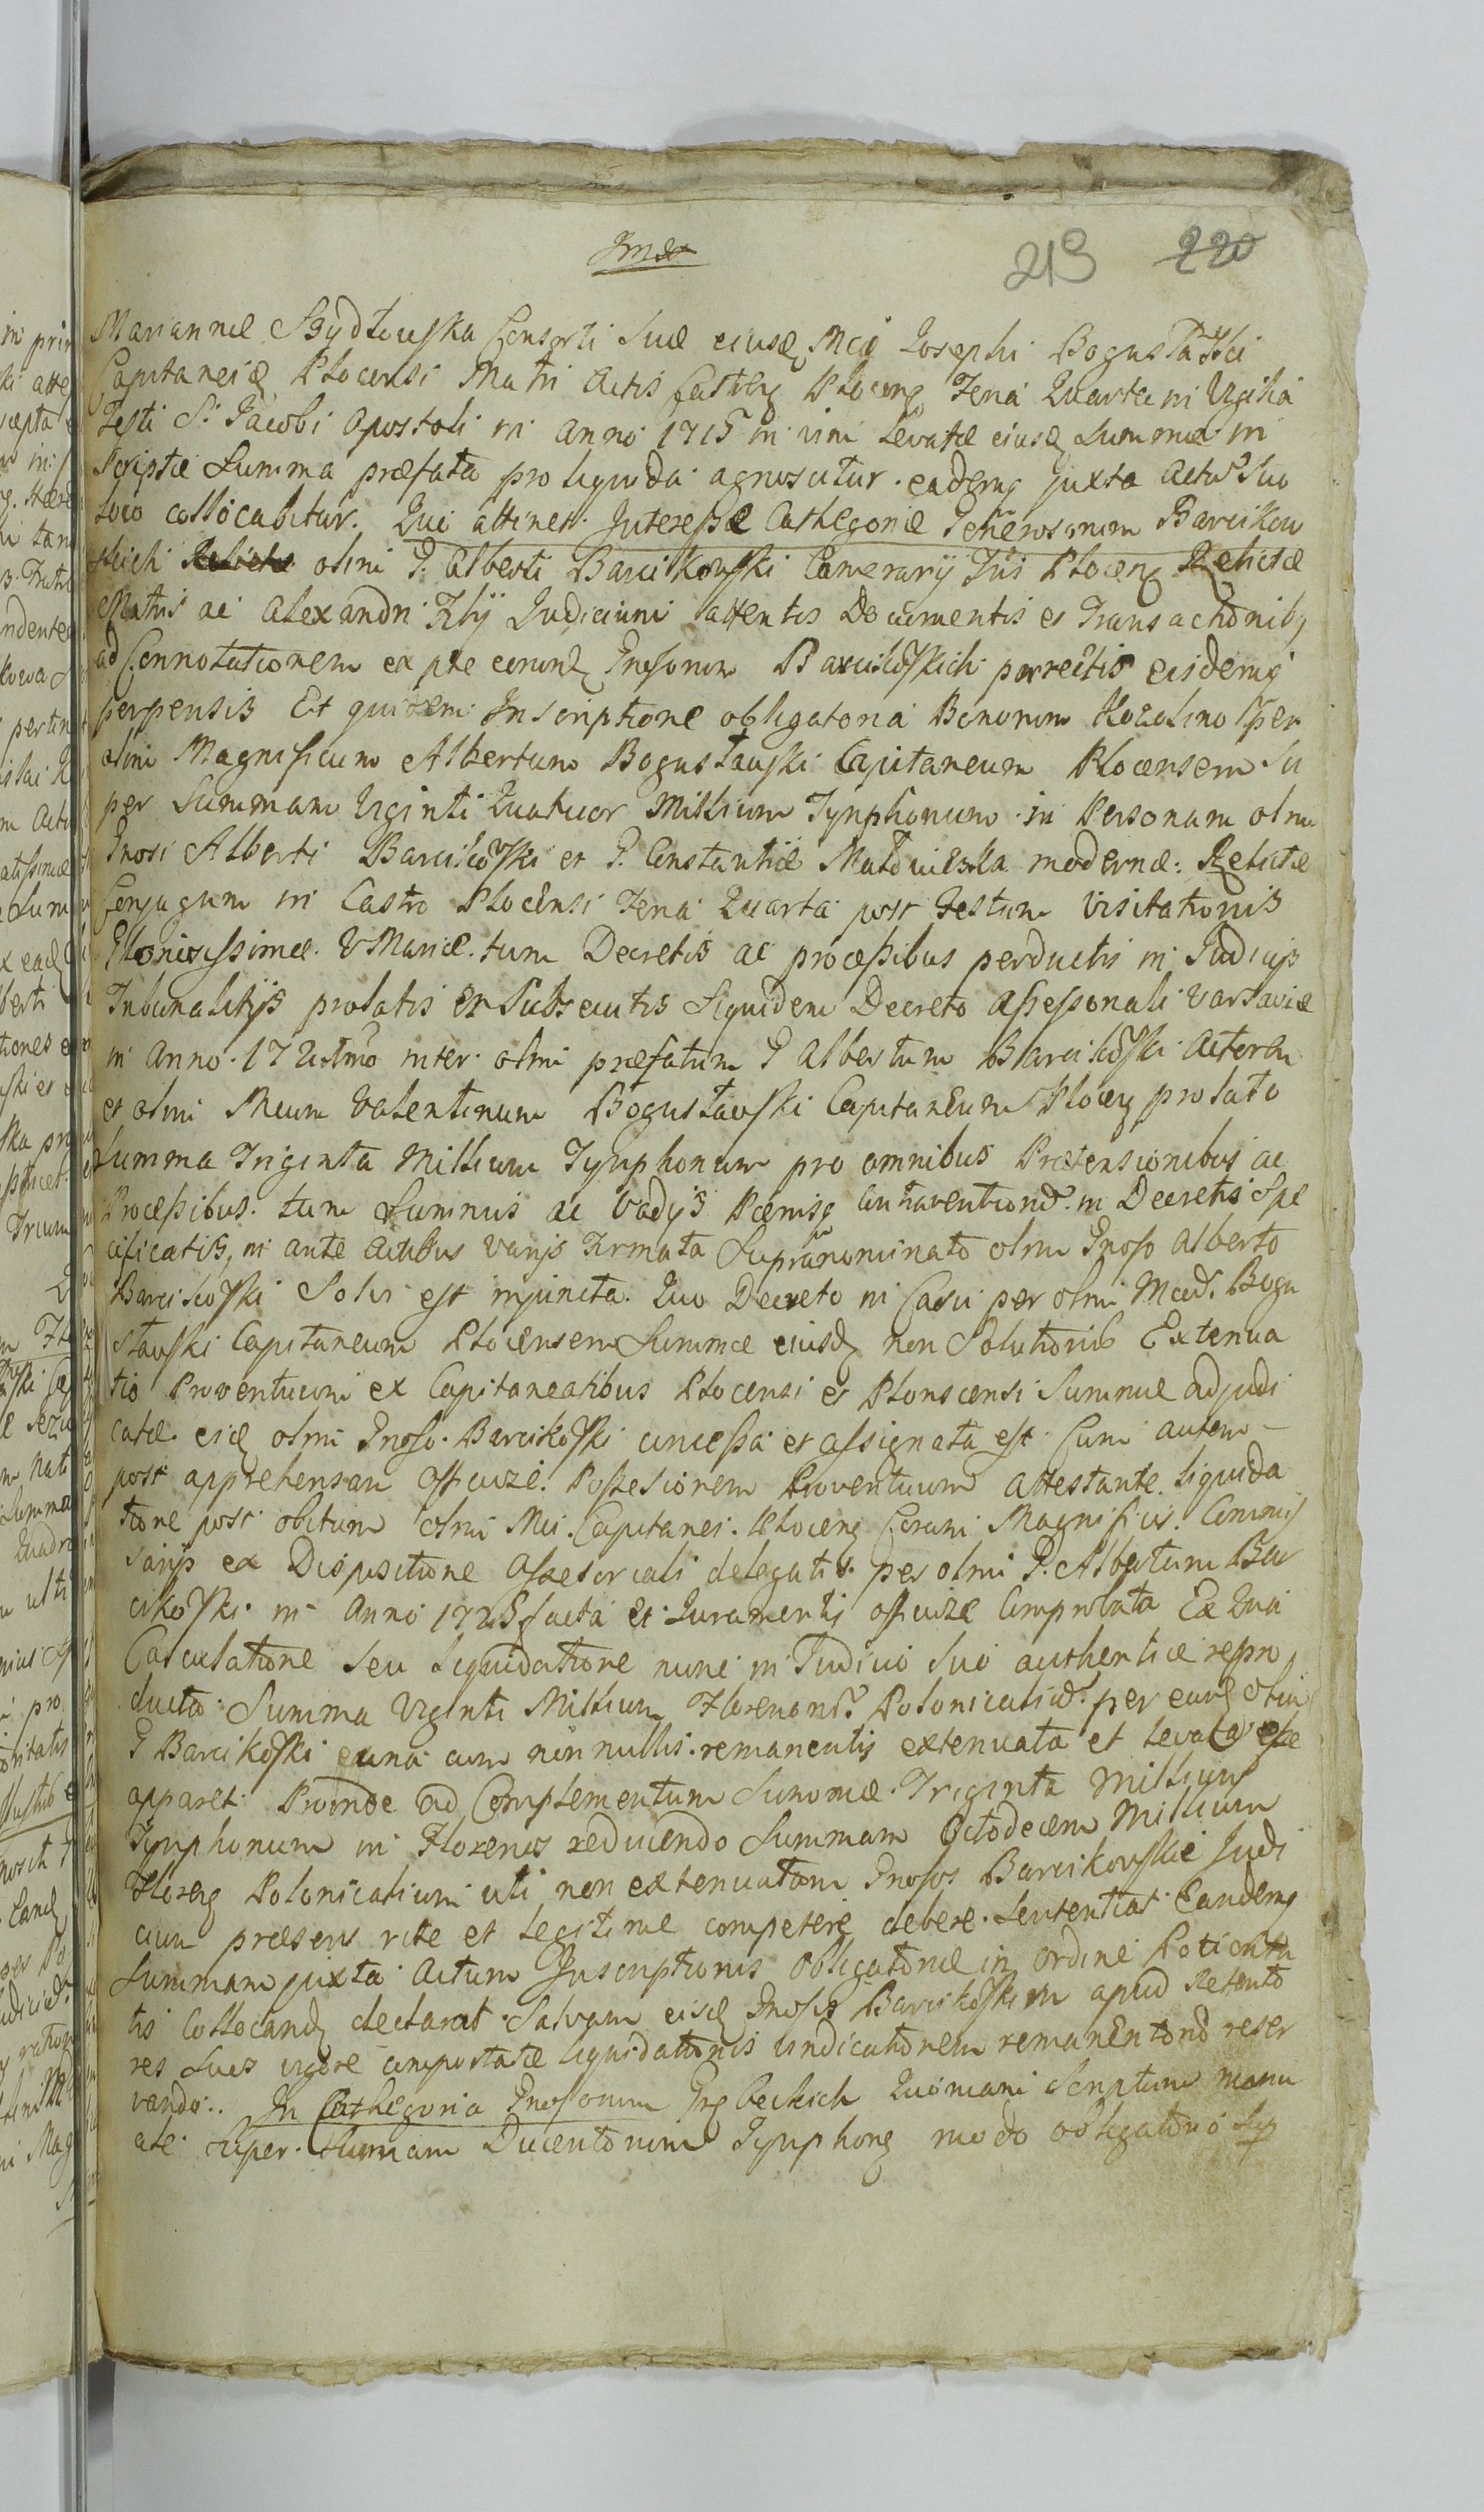 219 220
Mariannæ Szydłowska Consorti suæ eiusq Mci Josephi Bogusławski
Capitaneiq Plocensi Matri Actis Castreq Plocenq Feria Quarta in Vigilia
Festi S. Jacobi Apostoli in anno 1715 in vim Levatæ eiusq Summæ in
scriptæ Summa præfata pro liquida agnoscitur eademq juxta actus suo
loco collocabitur. Qui attinet Interesse Cathegoriæ Generosorum Barcikow
skich olim G. Alberti Barcikowski Camerarij Plocenq Relictæ
Matris ac Alexandri Filij Judicium attentis Documentis et Transactionibq
ad Connotationem ex pte eorunq Gnosorum Barcikoskich porrectis eisdemq
perpensis Et quidem Inscriptione obligatoria Bonorum Kozolino per
olim Magnificum Albertum Bogusławski Capitaneum Plocensem Su
per Summam Viginti Quatuor Millium Tynphonum in Personam olim
Gnosi Alberti Barcikoski et G. Constantiæ modernæ Relictæ
Conjugum in Castro Plocensi Feria Quarta post Festum Visitationis
V Mariæ tum Decretis ac processibus perductis in Judicijs
Tribunalitijs prolatis et subsecutis Siquidem Decreto Assessoriali Varsaviæ
in anno 172 inter olim præfatum G Albertum Barcikoski Actorem
et olim Mcum Valentinum Bogusławski Capitaneum Plocenq prolato
Summa Triginta Millium Tynphonum pro omnibus Prætensionibus ac
Processibus tum Summis ac Vadijs Pænisq contraventiond. in Decretis Spe
cificatis, in ante actibus varijs Firmata Supranominato olim Gnoso Alberto
Barcikoski Solvi est injuncta. Quo Decreto in Casu per olim Mcud. Bogu
sławski Capitaneum Plocensem Summæ eiusq non Solutionis Extenua
tio Proventuum ex Capitaneatibus Plocensi et Plonscensi Summæ adjudi
catæ eiq olim Gnoso Barcikoski concessa et assignata est Cum autem
post apprehensam officiose Possesionem Proventuum attestante liquida
tione post obitum olim Mci Capitanei Plocenq Coram Magnificis Commis
sarijs ex Dispositione Assesoriali delegatis per olim G. Albertum Bar
cikoski in Anno 1725 facta et Juramentis officiose Comprobata Ex Qua
Calculatione seu Liquidatione nunc in Judicio suo authentice repro
ducta Summa Viginti Millium Florenord. Polonicalium per eunq olim
G Barcikoski una cum nonnullis remanentijs extenuata et Levata esse
apparet Proinde ad Complementum Summæ Triginta Millium
Tynphonum in Florenos reducendo Summam Octodecem Millium
Florenq Polonicalium uti non extenuatam Gnosos Barcikowskie Judi
cium præsens rite et legitime competere debere sententiat Eandemq
Summam juxta actum Inscriptionis obligatoriæ in ordine Potiorita
tis Collocandq declarat Salvam eisq Gnosis Barcikoskim apud Retento
res suos vigore comportatæ Liquidationis vindicationem remanentiond reser
vando. In Cathegoria Gnosorum Grzbeckich Quoniam Scriptum manu
ale super Summam Ducentorum Tynphonq modo obligatorio